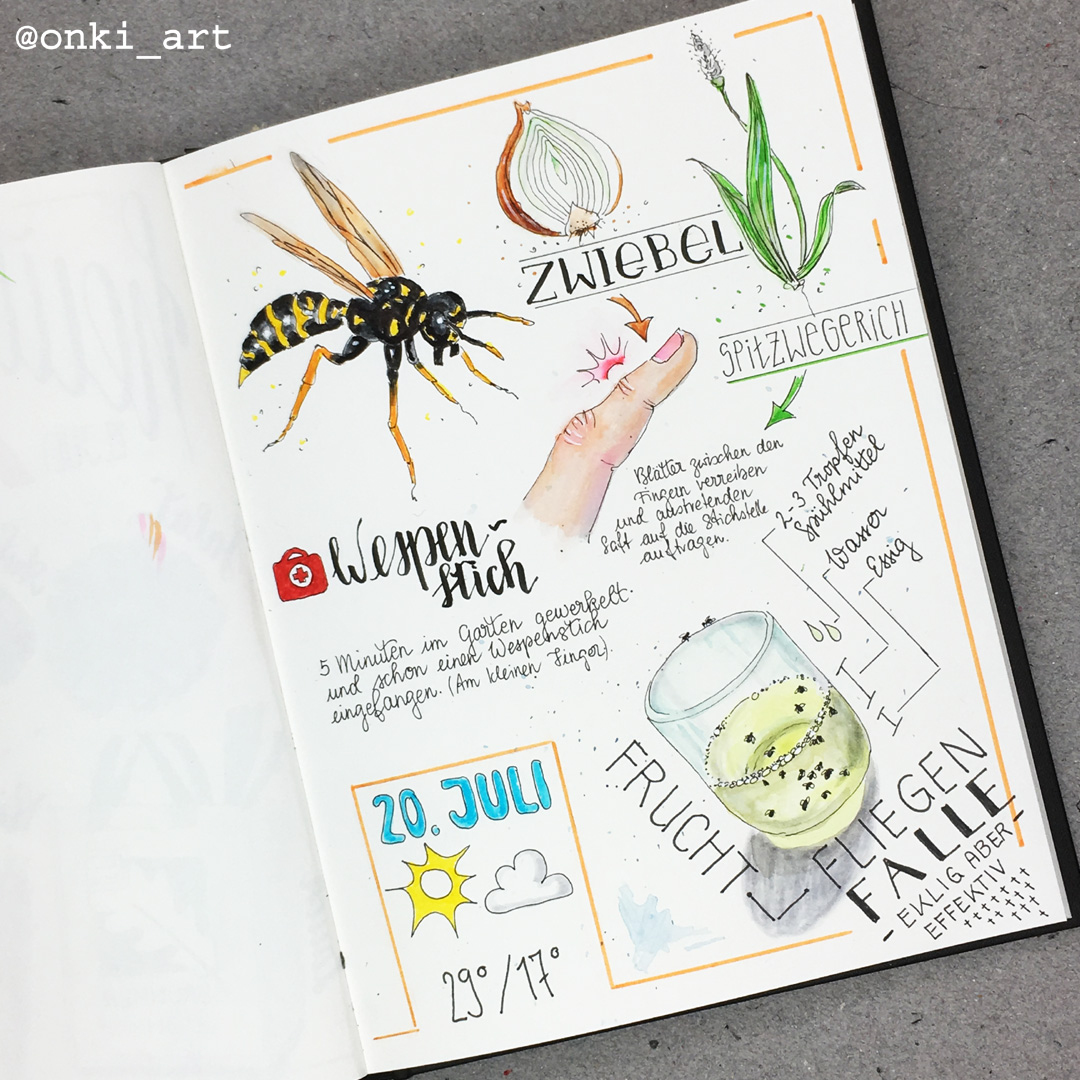 @onki_art
ZWIEBEL
SPITZWEGERICH
Blätter zwischen den
Fingern verreiben
und austretenden
Saft auf die Stichstelle
auftragen.
Wespen-
stich
5 Minuten im Garten gewerkelt.
und schon einen Wespenstich
eingefangen. (Am kleinen Finger).
2-3 Tropfen
Spühlmittel
Wasser
Essig
FRUCHT
FLIEGEN
FALLE
- EKLIG ABER -
EFFEKTIV
20. JULI
29°/17°